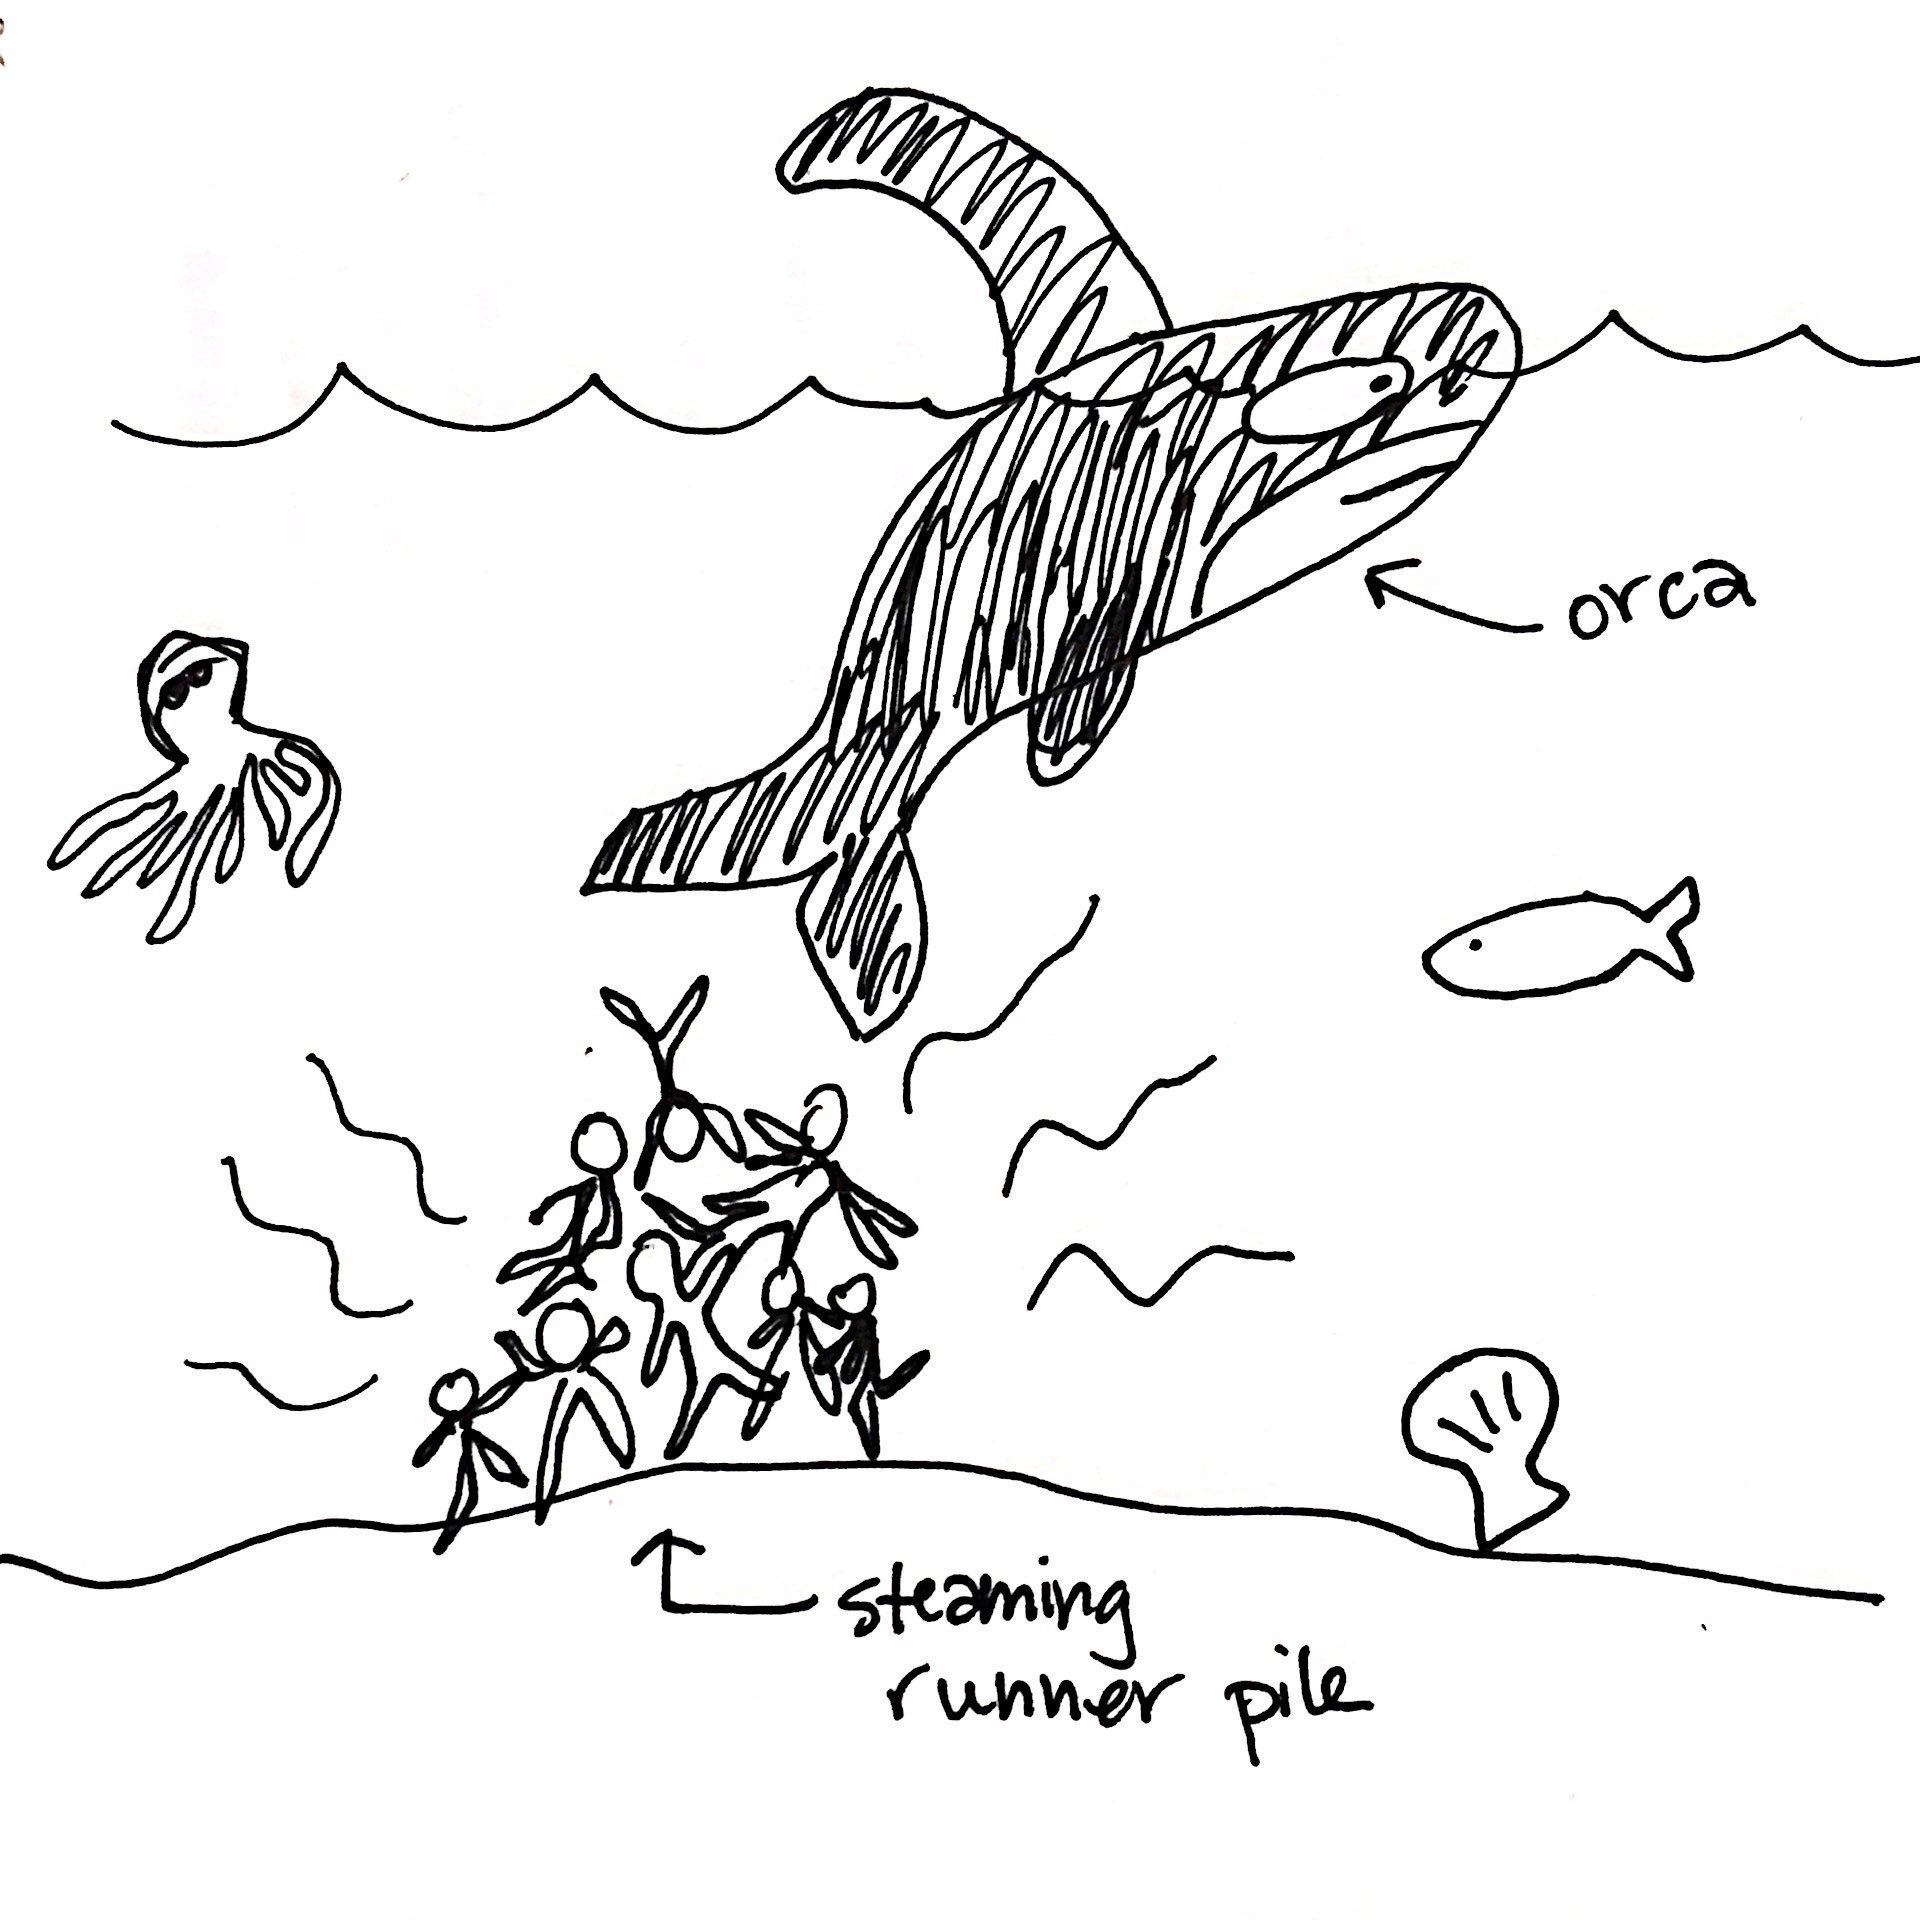 orca
steaming
runner pile